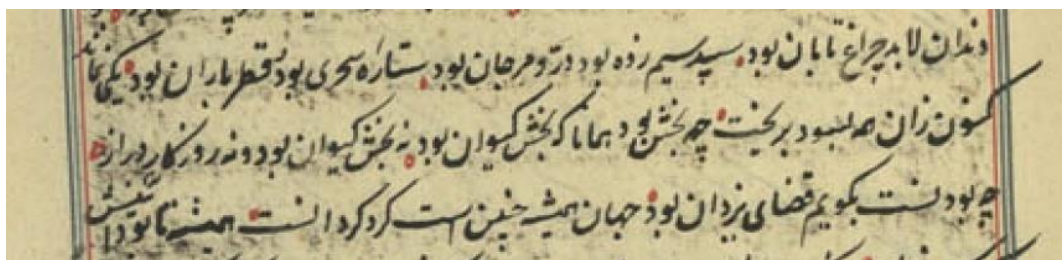 دندان لابد چراغ تابان بود سپید سیم رده بود درّ و مرجان بود ستاره سحری بود قطر باران بود یکی نماند
کنون زان همه بسود بریخت چه بخش بود همانا که بخش کیوان بود نه بخش کیوان بود و نه روزکار دراز
چه بود منت بکویم قضای یزدان بود جهان همیشه چنین است کرد کردانست همیشه تا بود آئینش